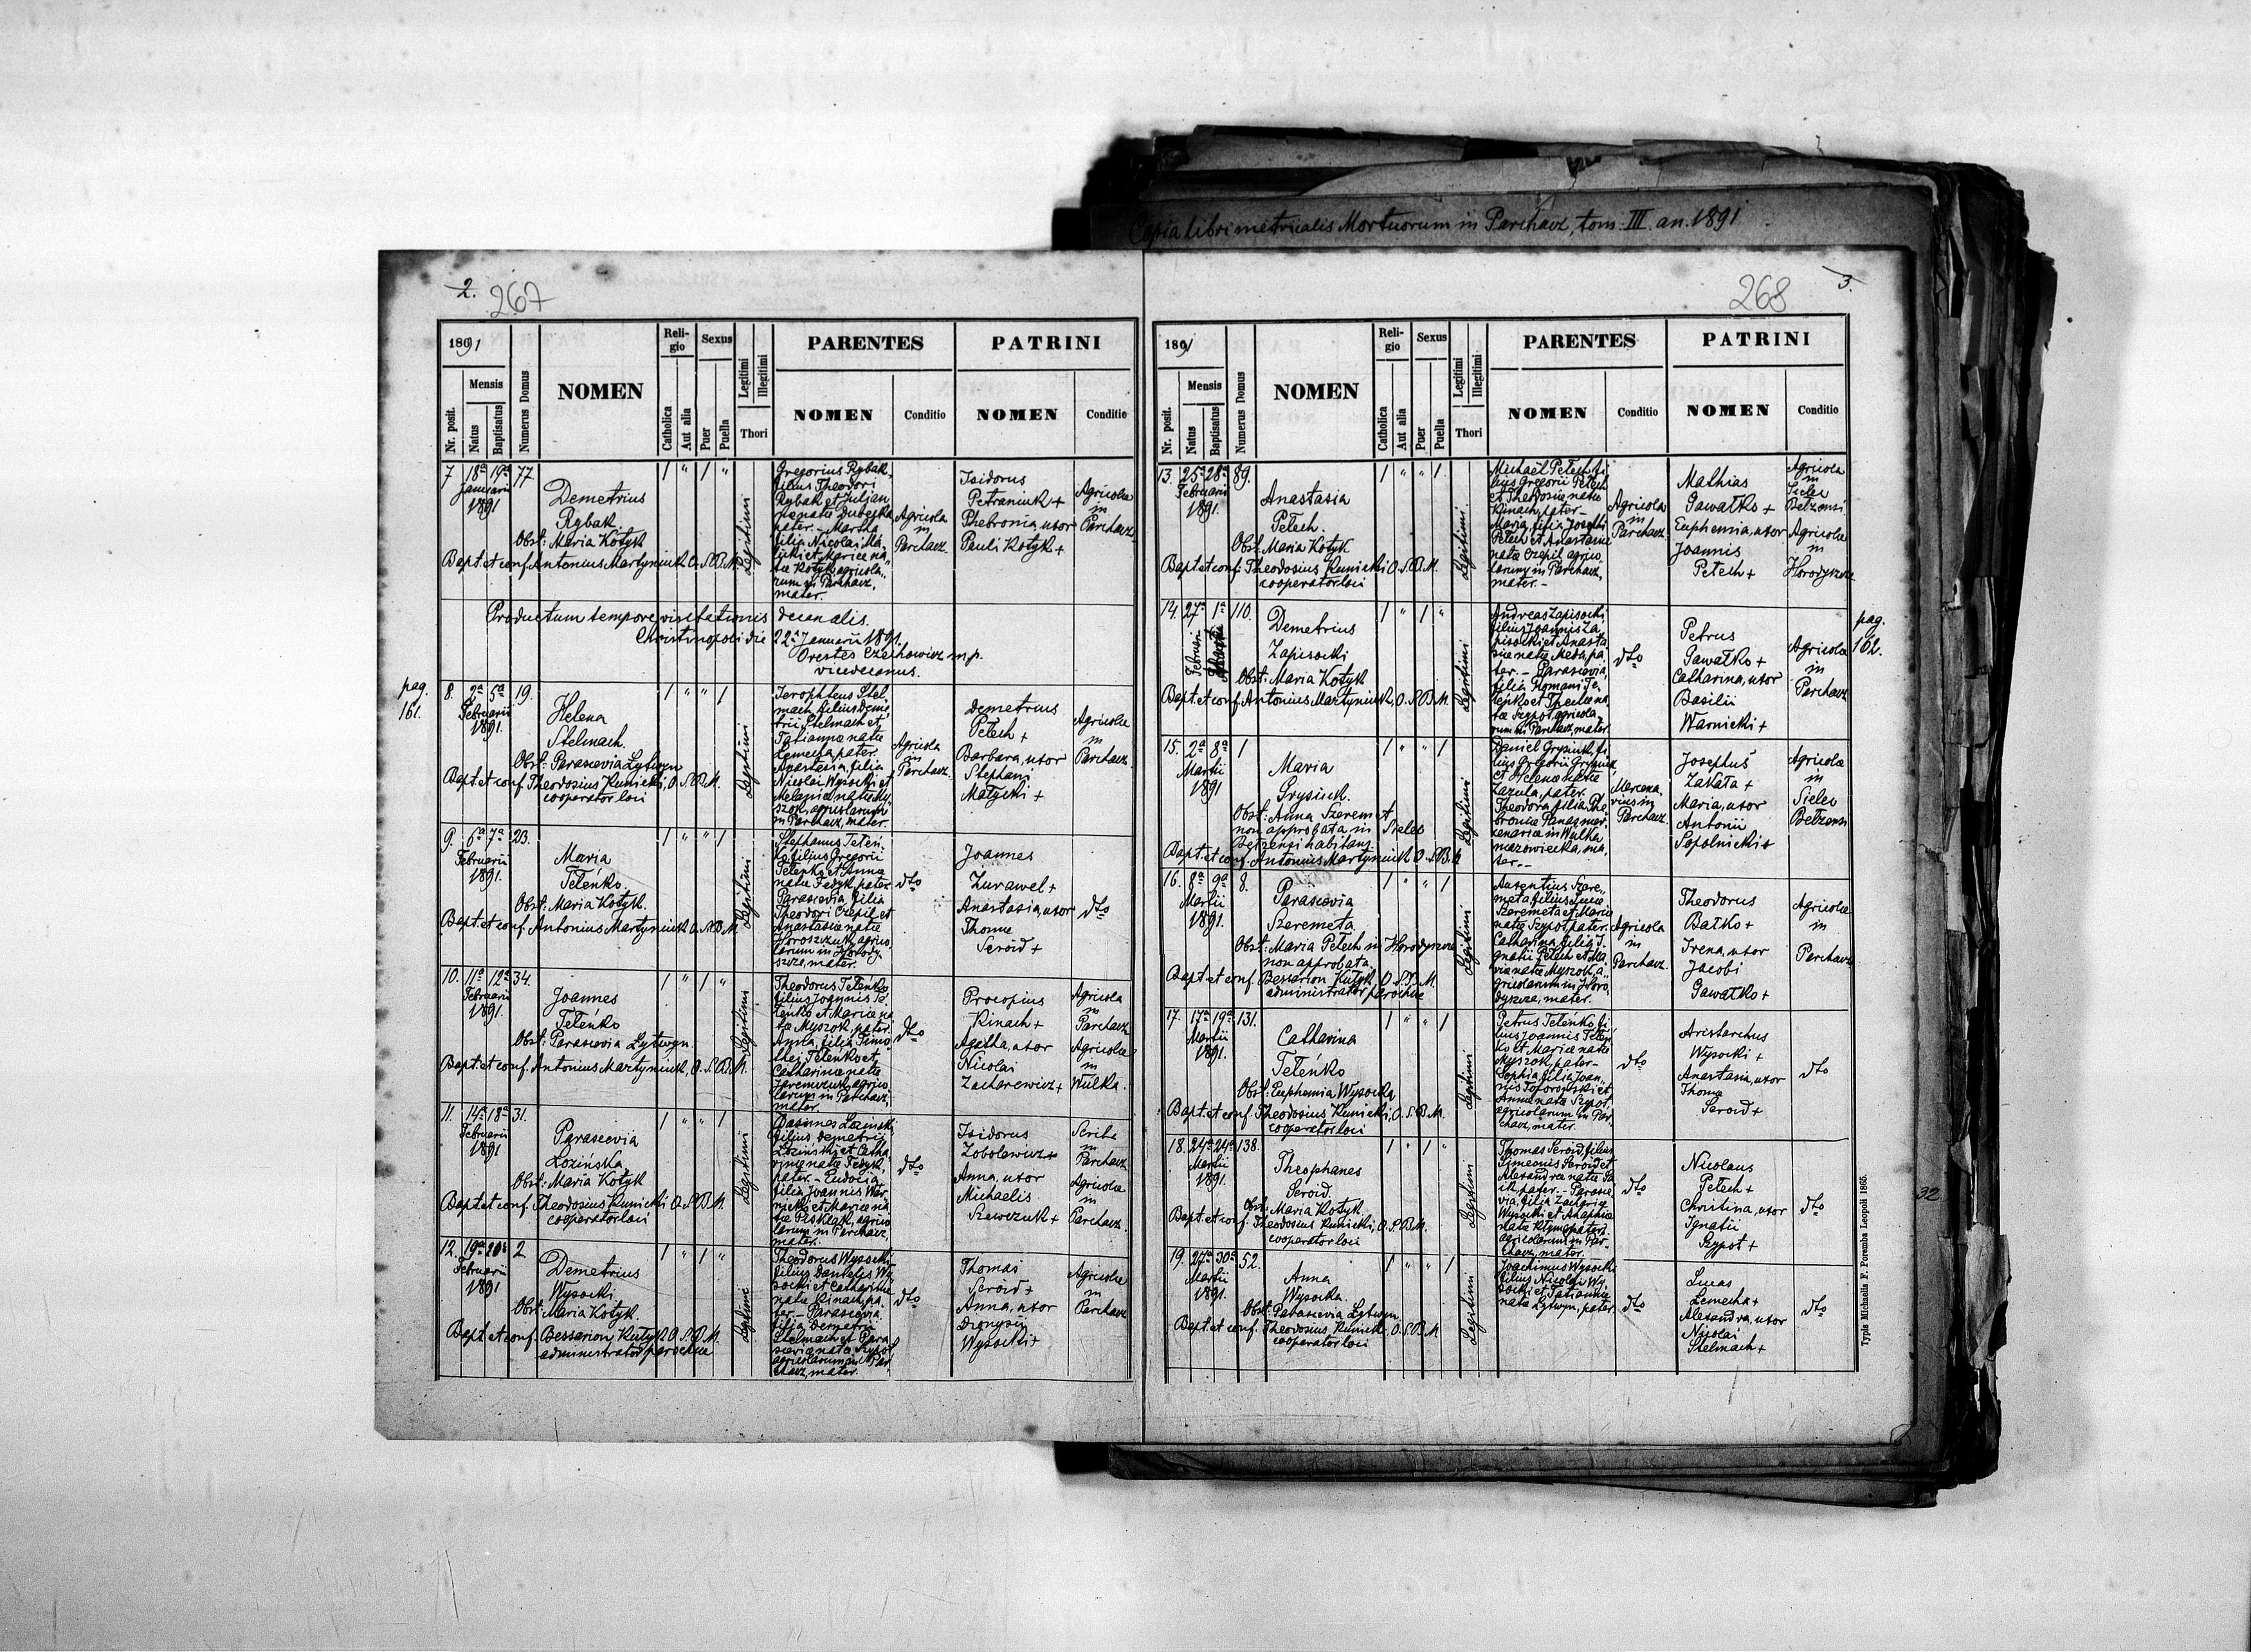 Copia libri metricalis Mortuorum in Parchacz, tom: III. an. 1891
2. 267
1891
Nr. posit.
Mensis
Natus
Baptisatus
Numerus Domus
NOMEN
Religio
Catholica
Aut alia
Sexus
Puer
Puella
Legitimi
Illegitimi
Thori
PARENTES
NOMEN
Conditio
PATRINI
NOMEN
Conditio
7 18a 19a 77
Januarii
1891
Demetrius
Rybak
Obst: Maria Kotyk
Bapt. et conf. Antonius Martyniuk O. S. B. M.
1 " 1 "
Legitimi
Gregorius Rybak,
filius Theodori
Rybak et Julian-
pater. – Martha
filia Nicolai
tae Kotyk, agricola-
rum in Parchacz,
mater.
Agricola
in
Parchacz
Isidorus
Petraniuk +
Phebronia, uxor
Pauli Kotyk +
Agricolae
in
Parchacz
Productum tempore visitationis decanalis.
Christinopoli die 22a Januarii 1891.
Orestes Czechowicz m.p.
vicedecanus.
pag.
161.
8. 2a 5a 19.
Februarii
1891.
Helena
Stelmach.
Obst: Parascevia Lytwyn
Bapt. et conf. Theodosius Kunicki, O. S. B. M.
cooperator loci
1 " " 1
Legitimi
Jerophteus Stel-
mach, filius Deme-
trii Stelmach et
Tatiannae natae
Lemecha, pater.
Anastasia, filia
Nicolai Wysocki et
Melaniae natae My-
szok, agricolarum
in Parchacz, mater.
Agricola
in
Parchacz
Demetrius
Petech +
Barbara, uxor
Stephani
Matycki +
Agricolae
in
Parchacz
9. 6a 7a 23.
Februarii
1891.
Maria
Teleńko.
Obst: Maria Kotyk.
Bapt. et conf. Antonius Martyniuk O. S. B. M.
1 " " 1
Legitimi
Stephanus Teleń-
ko filius Gregorii
Teleńko et Annae
natae Fedyk, pater
Parascevia, filia
Theodori Czepil et
Anastasiae natae
Horoszczuk, agrico-
larum in Horody-
szcze, mater.
dto
Joannes
Zurawel +
Anastasia, uxor
Thomae
Seroid +
dto
10. 11a 12a 34.
Februarii
1891.
Joannes
Teleńko
Obst: Parascevia Lytwyn.
Bapt. et conf. Antonius Martyniuk, O. S. B. M.
1 " 1 "
Legitimi
Theodorus Teleńko
filius Joannis Te-
leńko et Mariae na-
tae Myszok, pater.
Anna, filia Timo-
thei Teleńko et
Catharinae natae
Jaremczuk, agrico-
larum in Parchacz,
mater.
dto
Procopius
Kinach +
Agatha, uxor
Nicolai
Zacharewicz +
Agricola
in
Parchacz
Agricolae
in
Wulka.
11. 14a 18a 31.
Februarii
1891
Parascevia
Łozińska
Obst: Maria Kotyk
Bapt. et conf. Theodosius Kunicki O. S. B. M.
cooperator loci
1 " " 1
Legitimi
Joannes Łoziński
filius Demetrii
Łoziński et Catha-
rinae natae Fedyk,
pater. – Eudocia
filia Joannis War-
nicki et Mariae na-
tae Pisklak, agrico-
larum in Parchacz,
mater.
dto
Isidorus
Zobolewicz +
Anna, uxor
Michaelis
Szewczuk +
Scriba
in
Parchacz
Agricolae
in
Parchacz.
12. 19a 20a 2.
Februarii
1891
Demetrius
Wysocki.
Obst: Maria Kotyk.
Bapt. et conf. Bessarion Kułyk O. S. B. M.
administrator parochiae
1 " 1 "
Legitimi
Theodorus Wysocki
filius Danielis Wy-
socki et Catharinae
natae Kinach, pa-
ter – Parascevia
filia Demetrii
Stelmach et Para-
sceviae natae Szypot
agricolarum in Par-
chacz, mater.
dto
Thomas
Seroid +
Anna, uxor
Dionysii
Wysocki +
Agricolae
in
Parchacz
268 3.
1891
Nr. posit.
Mensis
Natus
Baptisatus
Numerus Domus
NOMEN
Religio
Catholica
Aut alia
Sexus
Puer
Puella
Legitimi
Illegitimi
Thori
PARENTES
NOMEN
Conditio
PATRINI
NOMEN
Conditio
13. 25a 28a 89.
Februarii
1891.
Anastasia
Petech.
Obst: Maria Kotyk
Bapt. et conf: Theodosius Kunicki O. S. B. M.
cooperator loci
1 " " 1.
Legitimi
Michaël Petech, fi-
lius Gregorii Petech
et Theodosiae natae
Kinach, pater –
Maria, filia Josephi
Petech et Anastasiae
natae Czepil, agrico-
larum in Parchacz,
mater. –
Agricola
in
Parchacz
Mathias
Gawałko +
Euphemia, uxor
Joannis
Petech +
Agricola
in
Sielec
Belzensi.
Agricolae
in
Horodyszcze
14. 27a 1a 110.
Februarii
Martii
Demetrius
Zapisocki
Obst: Maria Kotyk
Bapt. et conf. Antonius Martyniuk, O. S. B. M.
1 " 1 "
Legitimi
Andreas Zapisocki
filius Joannis Za-
pisocki et Anasta-
siae natae Meda, pa-
ter. – Parascevia,
filia Romani Te-
leńko et Theclae na-
tae Szypot, agricola-
rum in Parchacz, mater.
dto
Petrus
Gawałko +
Catharina, uxor
Basilii
Warnicki +
Agricolae
in
Parchacz
pag.
162.
15. 2a 8a 1
Martii
1891
Maria
Grysiuk.
Obst: Anna Szeremet
non approbata in Sielec
Belzensi habitans
Bapt. et conf. Antonius Martyniuk O. S. B. M.
1 " " 1
Legitimi
Daniel Grysiuk, fi-
lius Gregorii Grysiuk
et Helenae natae
Zazula, pater.
Theodora, filia Phe-
broniae Panas, mer-
cenariae in Wulka
mazowiecka, ma-
ter. –
Mercena-
rius in
Parchacz
Josephus
Zakała +
Maria, uxor
Antonii
Sopolnicki +
Agricola
in
Sielec
Belzensi
16. 8a 9a 8.
Martii
1891.
Parascevia
Szeremeta
Obst: Maria Petech in Horodyszcze
non approbata.
Bapt. et conf. Bessarion Kułyk, O. S. B. M.
administrator parochiae
1 " " 1
Legitimi
Auxentius Szere-
meta filius Lucae
Szeremeta et Mariae
natae Szypot, pater.
Catharina, filia I-
gnatii Petech et Ma-
riae natae Myszok, a-
gricolarum in Horo-
dyszcze, mater.
Agricola
in
Parchacz.
Theodorus
Bałko +
Irena, uxor
Jacobi
Gawałko +
Agricolae
in
Parchacz
17. 17a 19a 131.
Martii
1891.
Catharina
Teleńko
Obst: Euphemia Wysocka
Bapt. et conf. Theodosius Kunicki, O. S. B. M.
cooperator loci
1 " " 1
Legitimi
Petrus Teleńko, fi-
lius Joannis Teleń-
ko et Mariae natae
Myszok, pater –
Sophia, filia Joan-
nis Toforowski et
Annae natae Szypot,
agricolarum in Par-
chacz, mater.
dto
Aristarchus
Wysocki +
Anastasia, uxor
Thomae
Seroid +
dto
18. 24a 24a 138.
Martii
1891.
Theophanes
Seroid.
Obst: Maria Kotyk
Bapt. et conf. Theodosius Kunicki, O. S. B. M.
cooperator loci
1 " 1 "
Legitimi
Thomas Seroid, filius
Simeonis Seroid et
Alexandrae natae
pater. – Parasce-
via, filia Zachariae
Wysocki et Agaphiae
agricolarum in Par-
chacz, mater.
dto
Nicolaus
Petech +
Christina, uxor
Ignatii
Szypot +
dto
19. 27a 30a 52.
Martii
1891.
Anna
Wysocka.
Obst: Parascevia Lytwyn
Bapt. et conf. Theodosius Kunicki, O. S. B. M.
cooperator loci
1 " " 1
Legitimi
Joachimus Wysocki
filius Nicolai Wy-
socki et Tatiannae
natae Lytwyn, pater.
dto
Lucas
Lemecha +
Alexandra, uxor
Nicolai
Stelmach +
dto
Typis Michaelis F. Poremba Leopoli 1865.
32